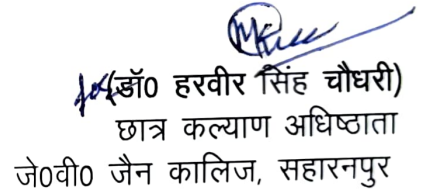 (डॉ0 हरवीर सिंह चौधरी)
छात्र कल्याण अधिष्ठाता
जे0वी0 जैन कालिज, सहारनपुर